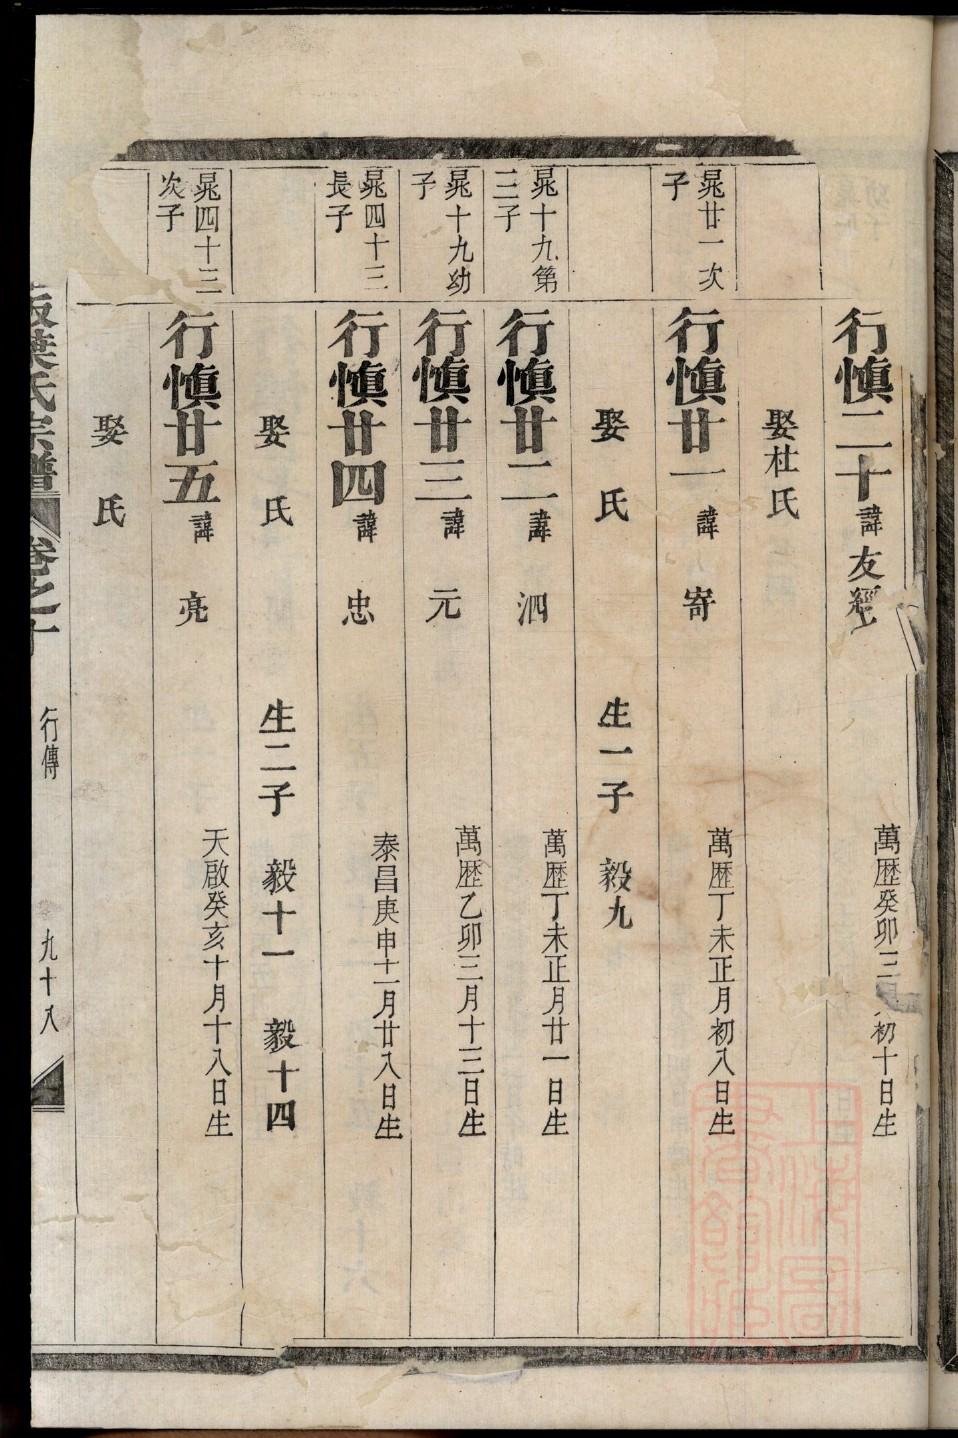 行慎二十諱友經
萬歷癸卯三月初十日生
娶杜氏
晁廿一次子
行慎廿一諱寄
萬歷丁未正月初八日生
娶氏 生一子 毅九
晁十九第三子
行慎廿二諱泗
萬歷丁未正月廿一日生
晁十九幼子
行慎廿三諱元
萬歷乙卯三月十三日生
晁四十三長子
行慎廿四諱忠
泰昌庚申十一月廿八日生
娶氏 生二子 毅十一 毅十四
晁四十三次子
行慎廿五諱亮
天啟癸亥十月十八日生
娶氏
葉氏宗譜 卷之十 行傳 九十八
上海圖書館藏